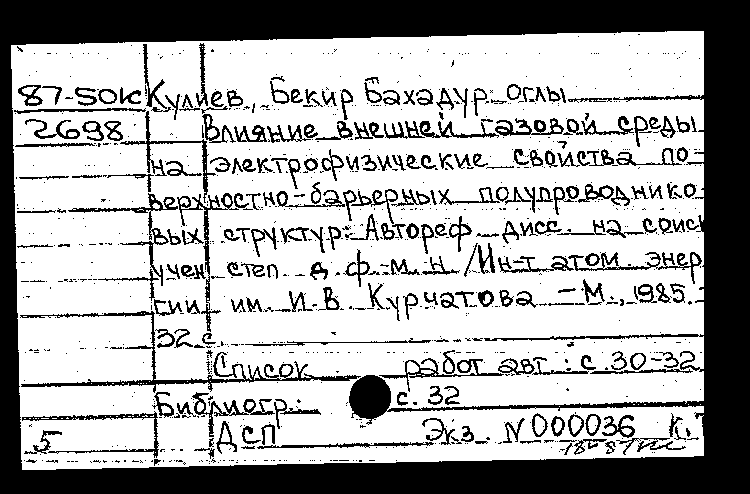 87-50К Кулиев, Бекир Бахадур оглы
2698 Влияние внешней газовой среды
на электрофизические свойства по-
верхностно-барьерных полупроводнико-
вых структур: Автореф. дисс. на соиск
учен степ. д. ф.-м. н. /Ин-т атом. энер
гии им. И.В. Курчатова – М., 1985. -
32 с.
Список работ авт.: с. 30-32
Библиогр.: с. 32
5 ДСП Экз. N 000036 К.Т